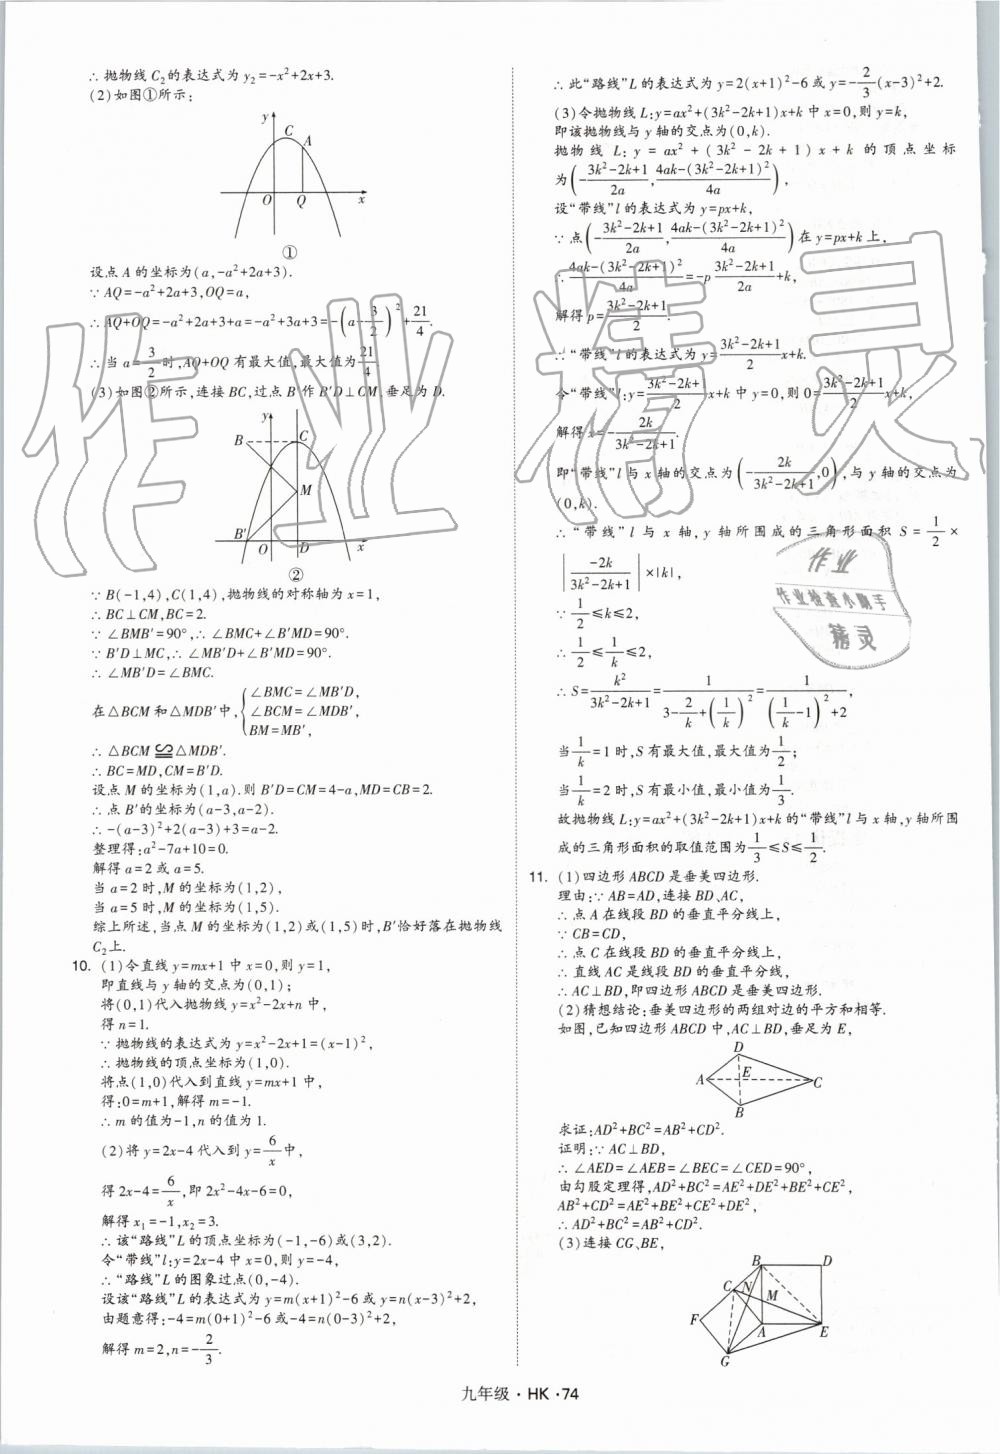 ∴抛物线C₂的表达式为y₂=-x²+2x+3.
(2)如图①所示:
y
C
A
O
Q
x
①
设点A的坐标为(a,-a²+2a+3).
∵AQ=-a²+2a+3,OQ=a,
∴AQ+OQ=-a²+2a+3+a=-a²+3a+3=-(a-3/2)²+21/4.
∴当a=3/2时,AQ+OQ有最大值,最大值为21/4.
(3)如图②所示,连接BC,过点B'作B'D⊥CM,垂足为D.
y
B
C
M
B'
O
D
x
②
∵B(-1,4),C(1,4),抛物线的对称轴为x=1,
∴BC⊥CM,BC=2.
∵∠BMB'=90°,∴∠BMC+∠B'MD=90°.
∵B'D⊥MC,∴∠MB'D+∠B'MD=90°.
∴∠MB'D=∠BMC.
在△BCM和△MDB'中,{∠BMC=∠MB'D,
∠BCM=∠MDB',
BM=MB',
∴△BCM≌△MDB'.
∴BC=MD,CM=B'D.
设点M的坐标为(1,a).则B'D=CM=4-a,MD=CB=2.
∴点B'的坐标为(a-3,a-2).
∴-(a-3)²+2(a-3)+3=a-2.
整理得:a²-7a+10=0.
解得a=2或a=5.
当a=2时,M的坐标为(1,2),
当a=5时,M的坐标为(1,5).
综上所述,当点M的坐标为(1,2)或(1,5)时,B'恰好落在抛物线
C₂上.
10. (1)令直线y=mx+1中x=0,则y=1,
即直线与y轴的交点为(0,1);
将(0,1)代入抛物线y=x²-2x+n中,
得n=1.
∵抛物线的表达式为y=x²-2x+1=(x-1)²,
∴抛物线的顶点坐标为(1,0).
将点(1,0)代入到直线y=mx+1中,
得:0=m+1,解得m=-1.
∴m的值为-1,n的值为1.
(2)将y=2x-4代入到y=6/x中,
得2x-4=6/x,即2x²-4x-6=0,
解得x₁=-1,x₂=3.
∴该“路线”L的顶点坐标为(-1,-6)或(3,2).
令“带线”l:y=2x-4中x=0,则y=-4,
∴“路线”L的图象过点(0,-4).
设该“路线”L的表达式为y=m(x+1)²-6或y=n(x-3)²+2,
由题意得:-4=m(0+1)²-6或-4=n(0-3)²+2,
解得m=2,n=-2/3.
∴此“路线”L的表达式为y=2(x+1)²-6或y=-2/3(x-3)²+2.
(3)令抛物线L:y=ax²+(3k²-2k+1)x+k中x=0,则y=k,
即该抛物线与y轴的交点为(0,k).
抛物线L:y=ax²+(3k²-2k+1)x+k的顶点坐标
为(-(3k²-2k+1)/2a,(4ak-(3k²-2k+1)²)/4a),
设“带线”l的表达式为y=px+k,
∵点(-(3k²-2k+1)/2a,(4ak-(3k²-2k+1)²)/4a)在y=px+k上,
∴(4ak-(3k²-2k+1)²)/4a=-p(3k²-2k+1)/2a+k,
解得p=(3k²-2k+1)/2.
∴“带线”l的表达式为y=(3k²-2k+1)/2 x+k.
令“带线”l:y=(3k²-2k+1)/2 x+k中y=0,则0=(3k²-2k+1)/2 x+k,
解得x=-2k/(3k²-2k+1).
即“带线”l与x轴的交点为(-2k/(3k²-2k+1),0),与y轴的交点为
(0,k).
∴“带线”l与x轴,y轴所围成的三角形面积S=1/2×
|-2k/(3k²-2k+1)|×|k|,
∵1/2≤k≤2,
∴1/2≤1/k≤2,
∴S=k²/(3k²-2k+1)=1/(3-2/k+(1/k)²)=1/((1/k-1)²+2),
当1/k=1时,S有最大值,最大值为1/2;
当1/k=2时,S有最小值,最小值为1/3.
故抛物线L:y=ax²+(3k²-2k+1)x+k的“带线”l与x轴,y轴所围
成的三角形面积的取值范围为1/3≤S≤1/2.
11. (1)四边形ABCD是垂美四边形.
理由:∵AB=AD,连接BD、AC,
∴点A在线段BD的垂直平分线上,
∵CB=CD,
∴点C在线段BD的垂直平分线上,
∴直线AC是线段BD的垂直平分线,
∴AC⊥BD,即四边形ABCD是垂美四边形.
(2)猜想结论:垂美四边形的两组对边的平方和相等.
如图,已知四边形ABCD中,AC⊥BD,垂足为E,
D
A
E
C
B
求证:AD²+BC²=AB²+CD².
证明:∵AC⊥BD,
∴∠AED=∠AEB=∠BEC=∠CED=90°,
由勾股定理得,AD²+BC²=AE²+DE²+BE²+CE²,
AB²+CD²=AE²+BE²+CE²+DE²,
∴AD²+BC²=AB²+CD².
(3)连接CG、BE,
B
D
C
N
M
F
A
E
G
九年级·HK·74
作业精灵
作业
作业检查小助手
精灵